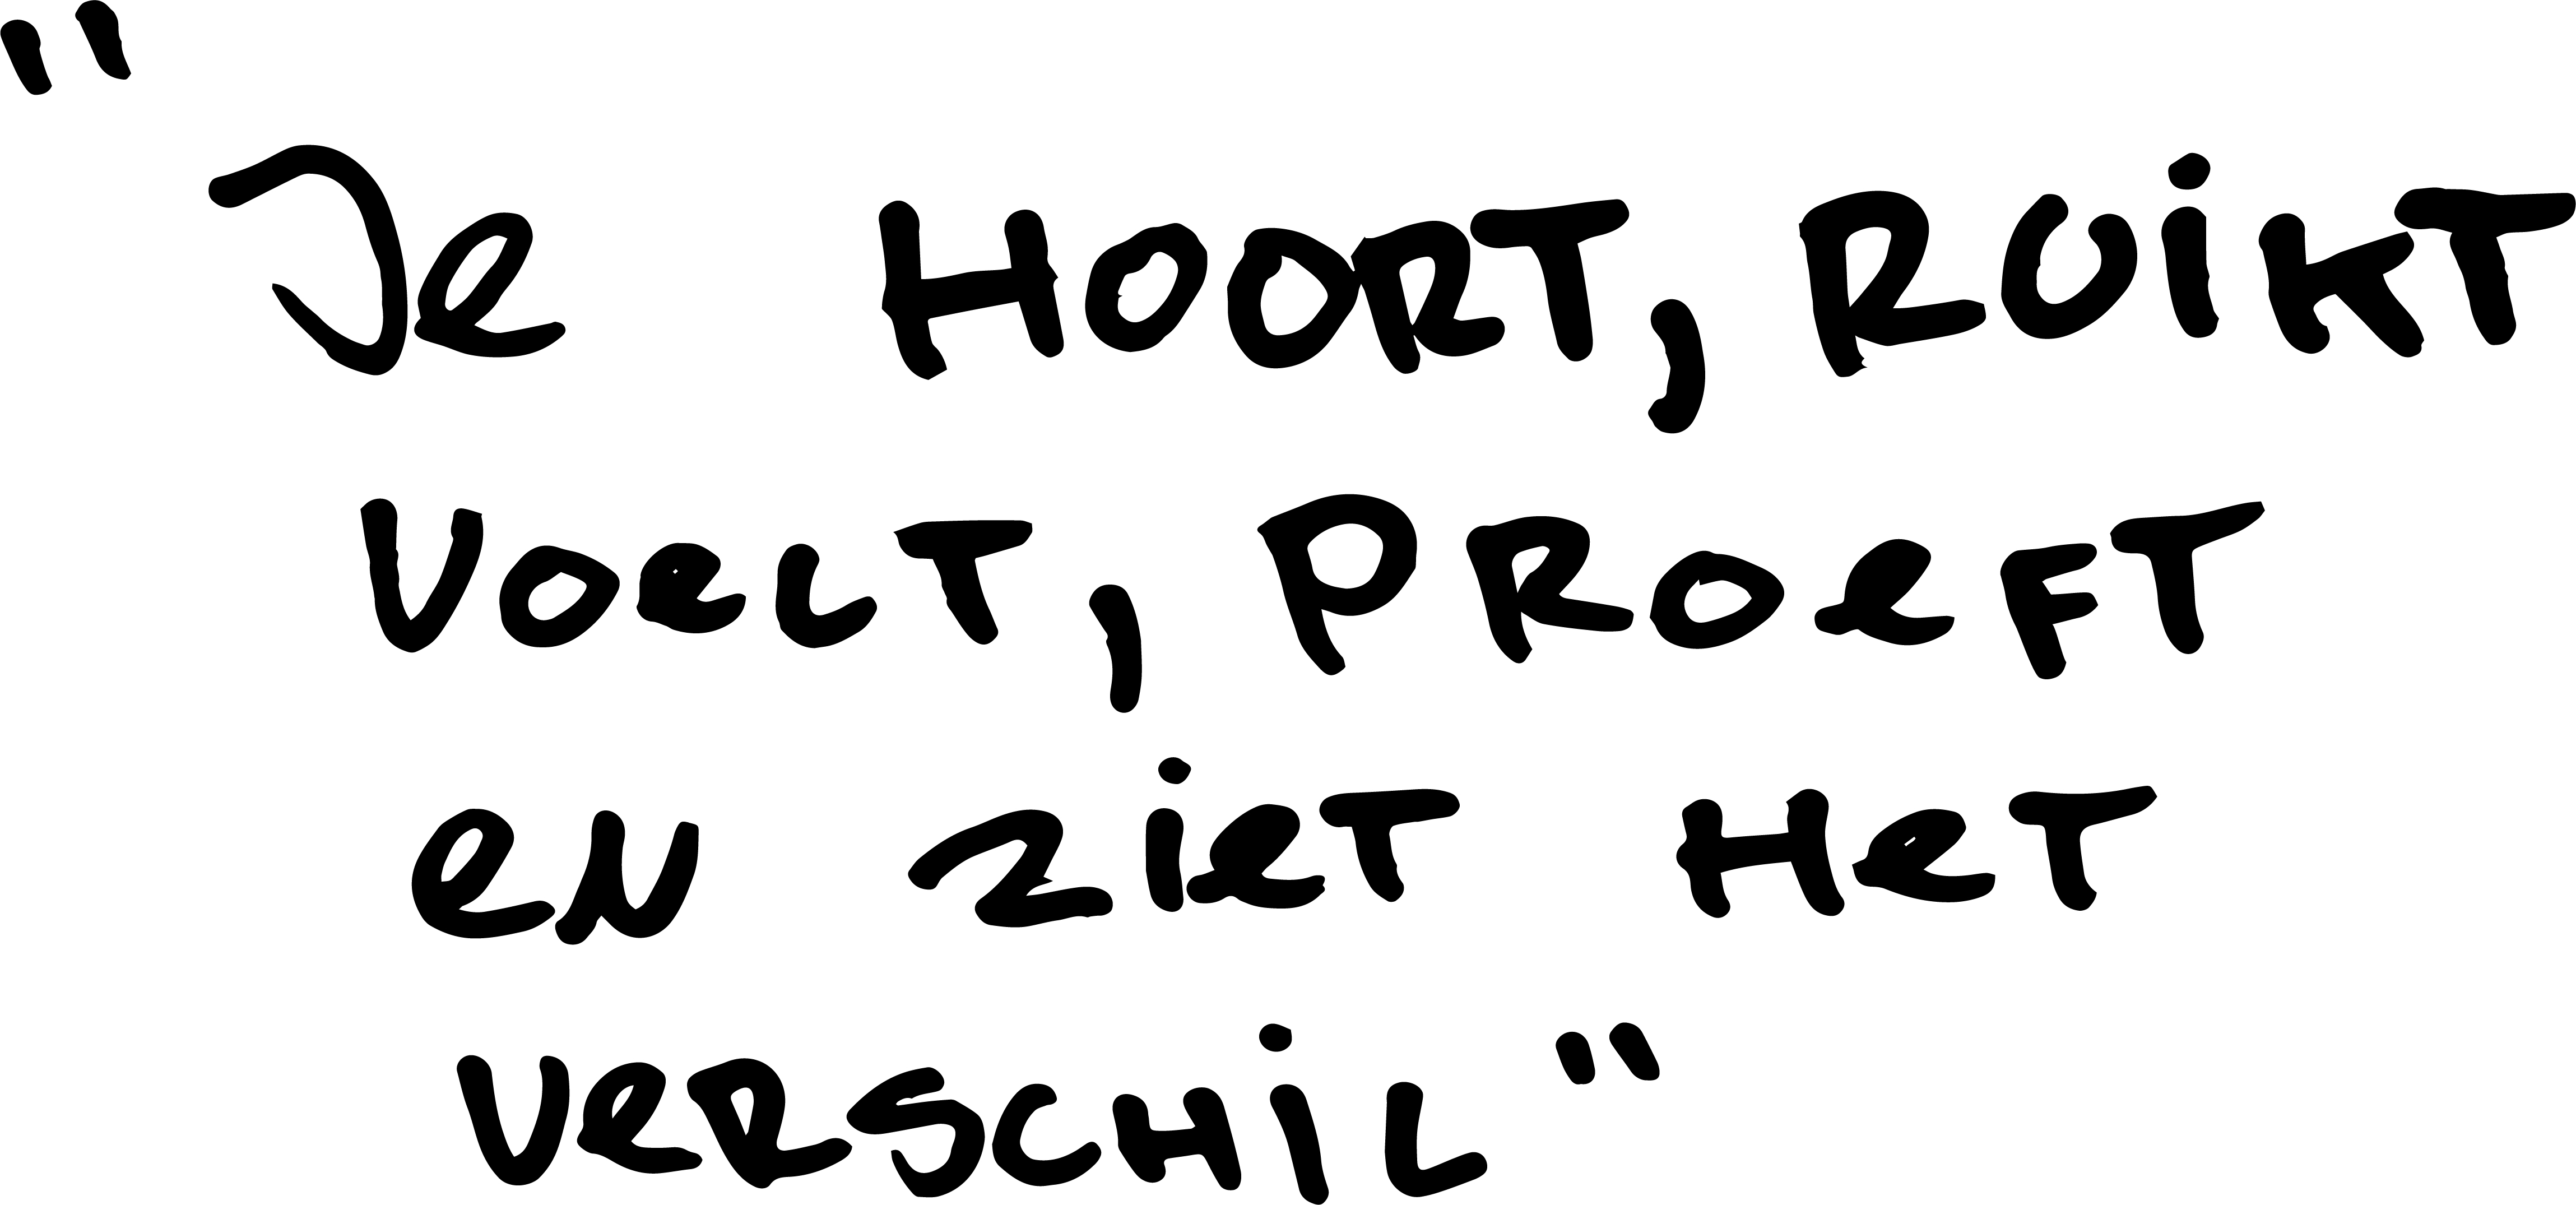 "Je HOORT, RUiKT
VOeLT, PROeFT
eN ZieT HeT
VeRSCHiL"